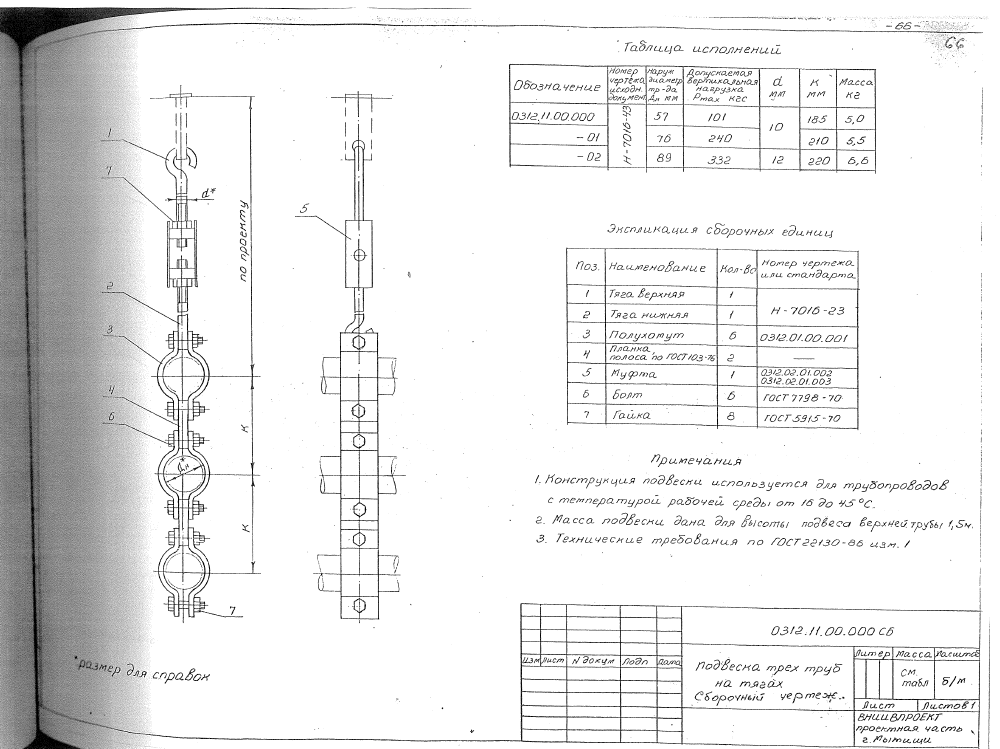 - 66 -
66
Таблица исполнений
Обозначение | Номер чертежа исходн. документ. | Наруж диаметр тр-да Дн мм | Допускаемая вертикальная нагрузка Рmax кгс | d мм | К мм | Масса кг
0312.11.00.000 | Н-7016-43 | 57 | 101 | 10 | 185 | 5,0
- 01 | 76 | 240 | 210 | 5,5
- 02 | 89 | 332 | 12 | 220 | 6,6
Экспликация сборочных единиц
Поз. | Наименование | Кол-во | Номер чертежа или стандарта
1 | Тяга верхняя | 1 | Н-7016-23
2 | Тяга нижняя | 1
3 | Полухомут | 6 | 0312.01.00.001
4 | Планка, полоса по ГОСТ 103-76 | 2 | —
5 | Муфта | 1 | 0312.02.01.002 0312.02.01.003
6 | Болт | 6 | ГОСТ 7798-70
7 | Гайка | 8 | ГОСТ 5915-70
Примечания
1. Конструкция подвески используется для трубопроводов
с температурой рабочей среды от 16 до 45°С.
2. Масса подвески дана для высоты подвеса верхней трубы 1,5м.
3. Технические требования по ГОСТ 22130-86 изм. 1
1
7
d*
2
3
4
6
Дн*
7
по проекту
К
К
5
*размер для справок
0312.11.00.000 СБ
Изм Лист N докум Подп Дата
Подвеска трех труб
на тягах
Сборочный чертеж.
Литер Масса Масштаб
см. табл
б/м
Лист Листов 1
ВНИИВПРОЕКТ
проектная часть
г. Мытищи